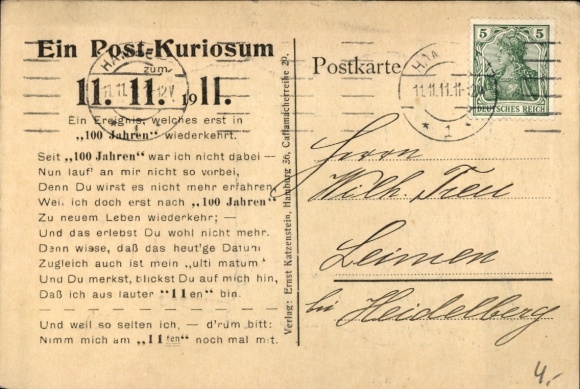 Ein Post-Kuriosum
zum
11. 11. 1911.
Ein Ereignis, welches erst in
„100 Jahren" wiederkehrt.
Seit „100 Jahren" war ich nicht dabei —
Nun lauf' an mir nicht so vorbei,
Denn Du wirst es nicht mehr erfahren,
Weil ich doch erst nach „100 Jahren"
Zu neuem Leben wiederkehr; —
Und das erlebst Du wohl nicht mehr.
Denn wisse, daß das heut'ge Datum
Zugleich auch ist mein „ulti matum"
Und Du merkst, blickst Du auf mich hin,
Daß ich aus lauter "11en" bin.
Und weil so selten ich, — d'rum bitt:
Nimm mich am „11ten" noch mal mit.
Verlag: Ernst Katzenstein, Hamburg 36, Caffamacherreihe
Postkarte
5 5
DEUTSCHES REICH
11.11.11.11-12V
* 1 *
Herrn
Wilh. Treu
Leimen
bei Heidelberg
4,-